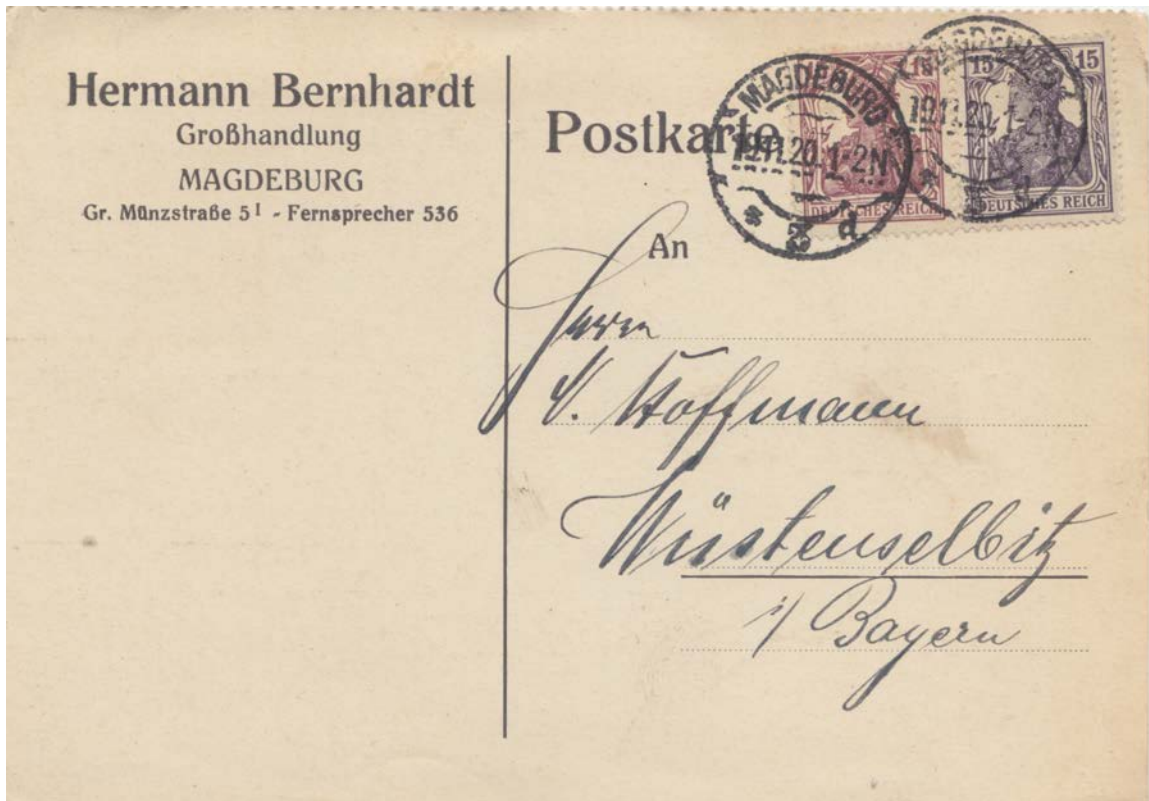 Hermann Bernhardt
Großhandlung
MAGDEBURG
Gr. Münzstraße 5 I - Fernsprecher 536
Postkarte
MAGDEBURG
19.11.20.1-2N
* 3 d
15
DEUTSCHES REICH
MAGDEBURG
19.11.20.1-2N
15 15
DEUTSCHES REICH
An
Herrn
Hoffmann
Wüstenselbitz
i/ Bayern